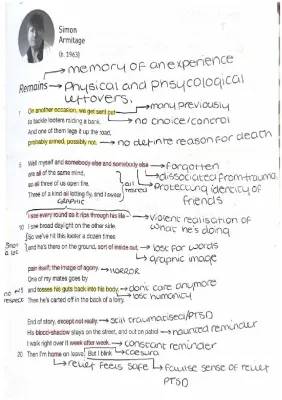 Simon
Armitage
(b. 1963)
→ memory of an experience
Remains → Physical and phsycological
leftovers.
1 On another occasion, we get sent out → many previously
to tackle looters raiding a bank. → no choice/control
And one of them legs it up the road,
probably armed, possibly not. → no definite reason for death
5 Well myself and somebody else and somebody else → forgotten
are all of the same mind, → dissociated from trauma
so all three of us open fire. } all mixed → Protecting identity of
Three of a kind all letting fly, and I swear friends
GRAPHIC
I see every round as it rips through his life – → violent realisation of
10 I see broad daylight on the other side. what he's doing
So we've hit this looter a dozen times
and he's there on the ground, sort of inside out, → lost for words
→ graphic image
pain itself, the image of agony. → HORROR
One of my mates goes by
no respect 15 and tosses his guts back into his body. → dont care anymore
Then he's carted off in the back of a lorry. → lost humanity
End of story, except not really. → still traumatised/PTSD
His blood-shadow stays on the street, and out on patrol → haunted reminder
I walk right over it week after week. → constant reminder
20 Then I'm home on leave. But I blink → caesura
→ relief feels safe → faulse sense of relief
PTSD